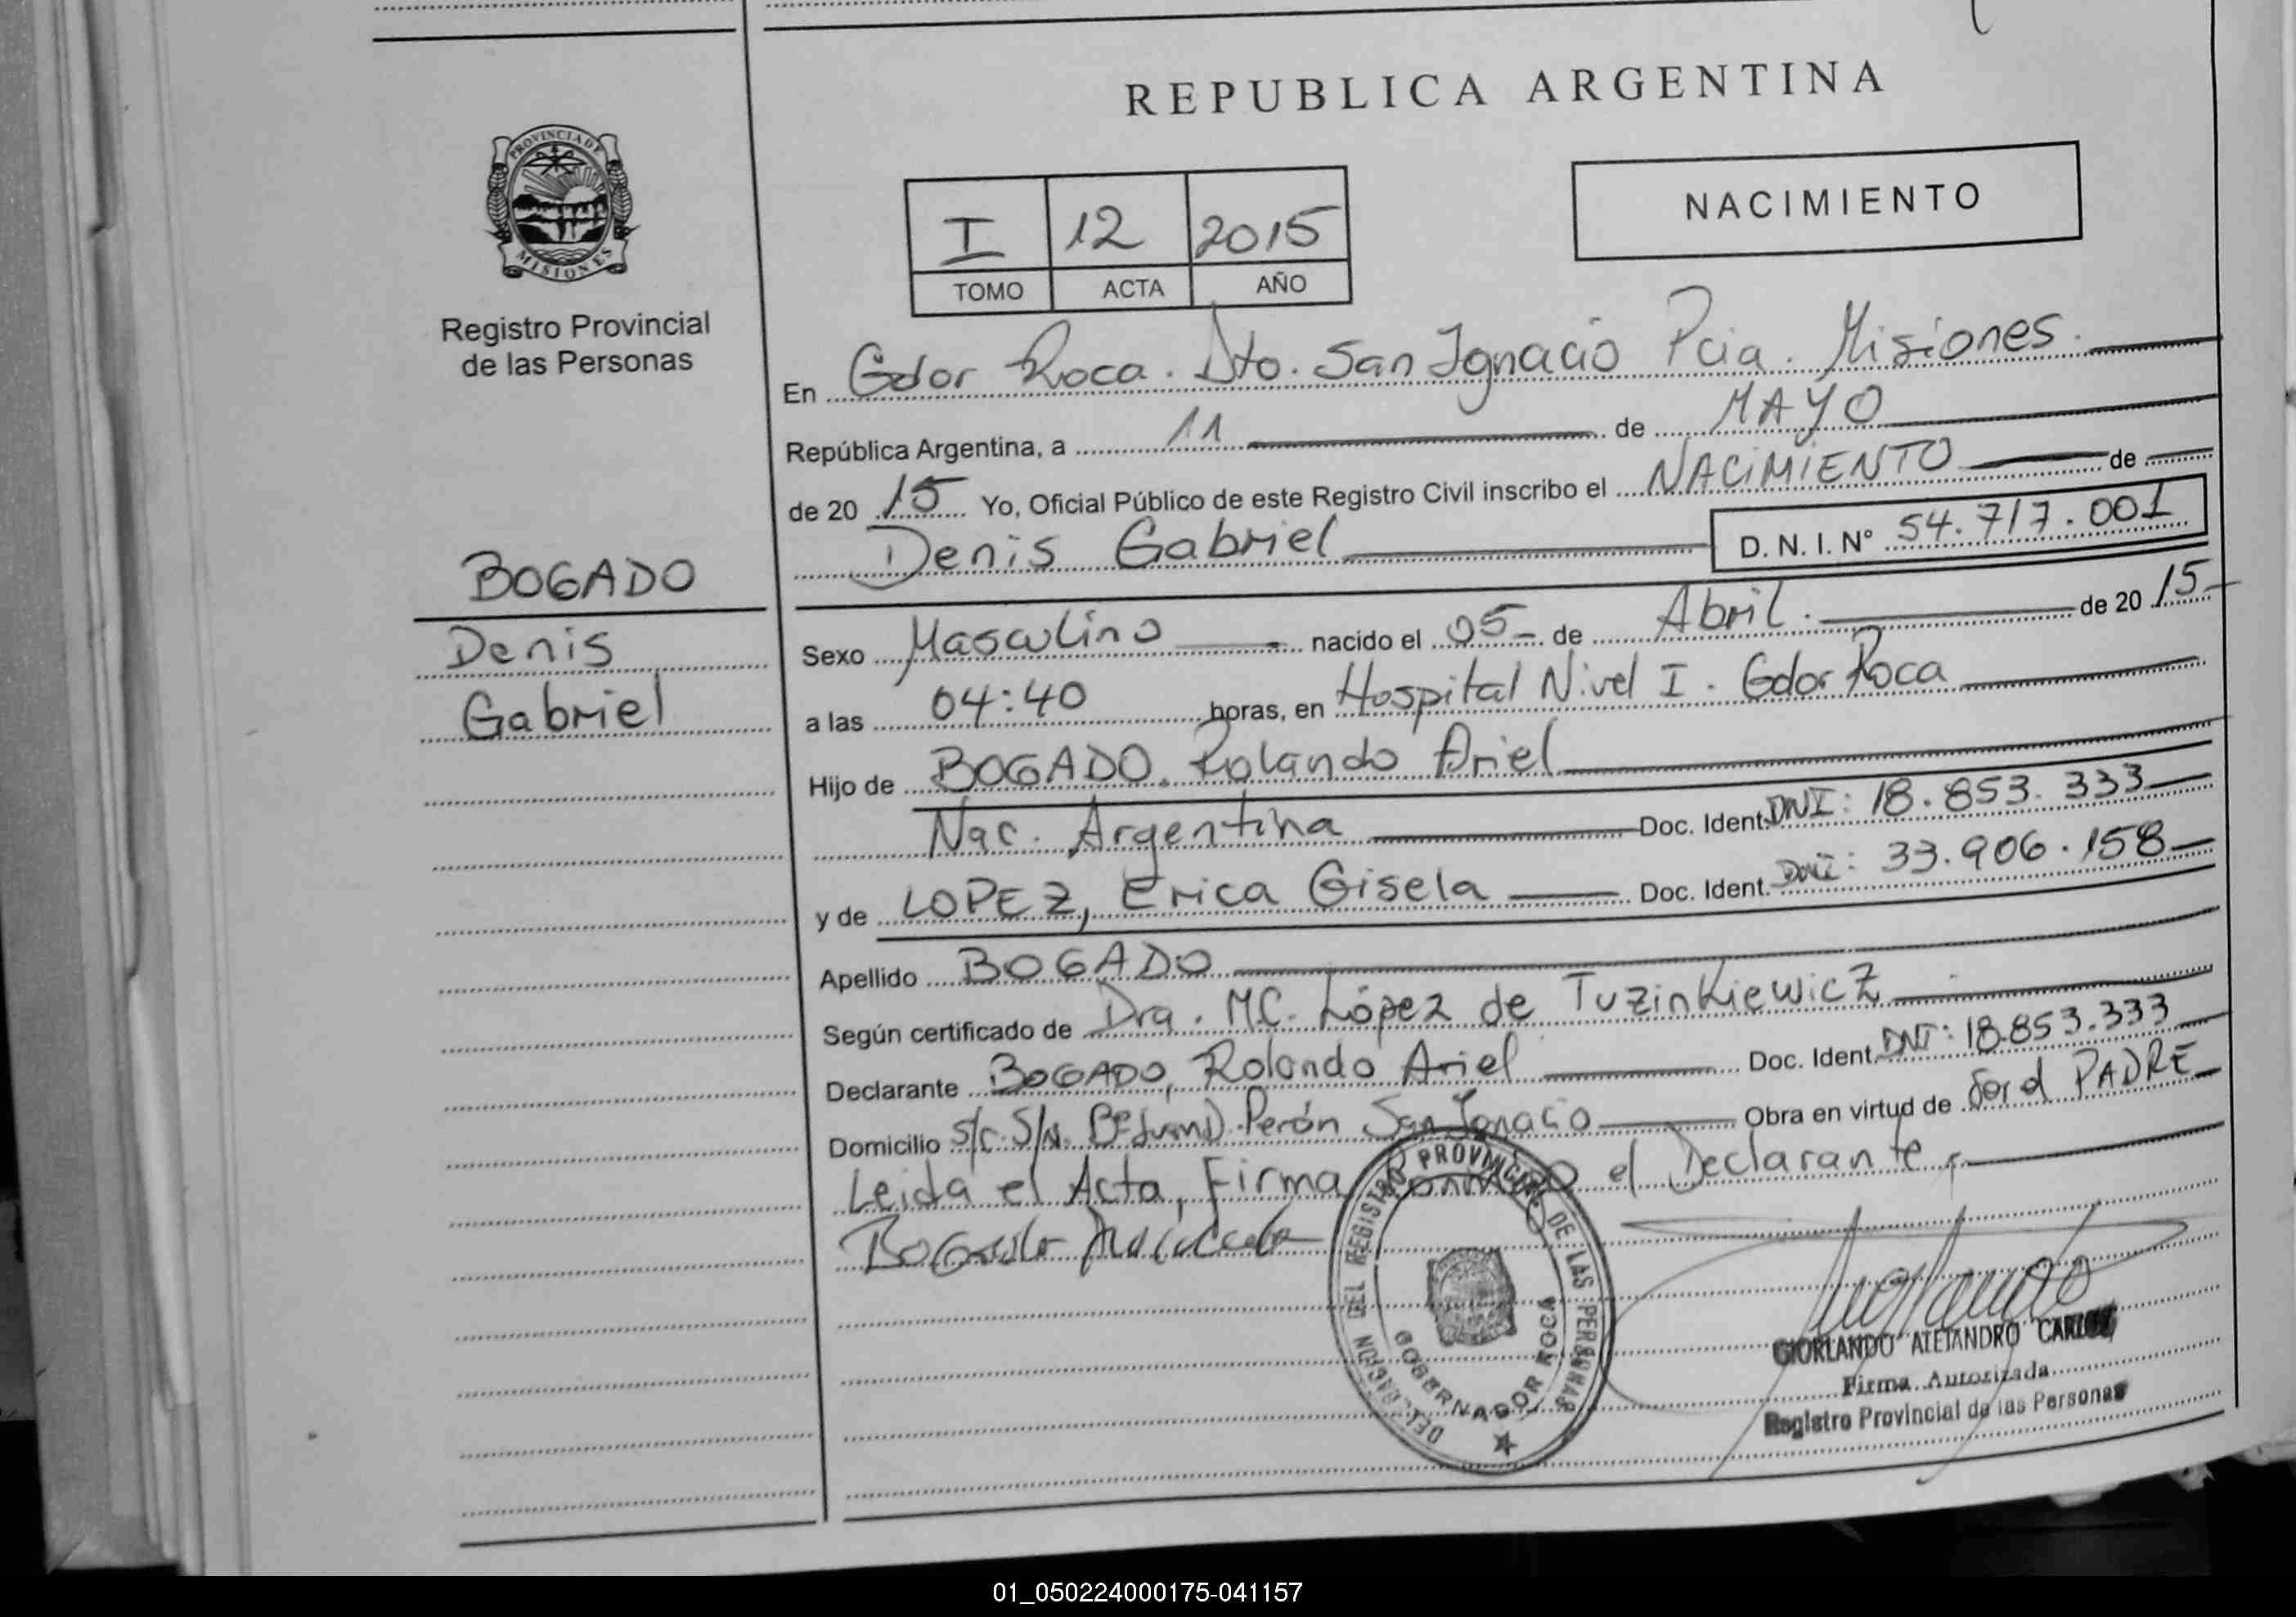 REPUBLICA ARGENTINA
PROVINCIA DE
MISIONES
Registro Provincial
de las Personas
NACIMIENTO
I 12 2015
TOMO ACTA AÑO
En Gdor Roca. Dto. San Ignacio Pcia. Misiones.
República Argentina, a 11 de MAYO
de 20 15 Yo, Oficial Público de este Registro Civil inscribo el NACIMIENTO de
Denis Gabriel D. N. I. N° 54.717.001
BOGADO
Denis
Gabriel
Sexo Masculino nacido el 05 de Abril. de 20 15
a las 04:40 horas, en Hospital Nivel I. Gdor Roca
Hijo de BOGADO, Rolando Ariel
Nac. Argentina Doc. Ident. DNI: 18.853.333
y de LOPEZ, Erica Gisela Doc. Ident. DNI: 33.906.158
Apellido BOGADO
Según certificado de Dra. M.C. López de Tuzinkiewicz
Declarante BOGADO, Rolando Ariel Doc. Ident. DNI: 18.853.333
Domicilio S/C. S/N. Bº Juan D. Perón San Ignacio Obra en virtud de ser el PADRE
Leida el Acta, Firma conmigo el Declarante
DELEGACION DEL REGISTRO PROVINCIAL DE LAS PERSONAS
GOBERNADOR ROCA
GIORLANDO ALEJANDRO CARLOS
Firma Autorizada
Registro Provincial de las Personas
01_050224000175-041157